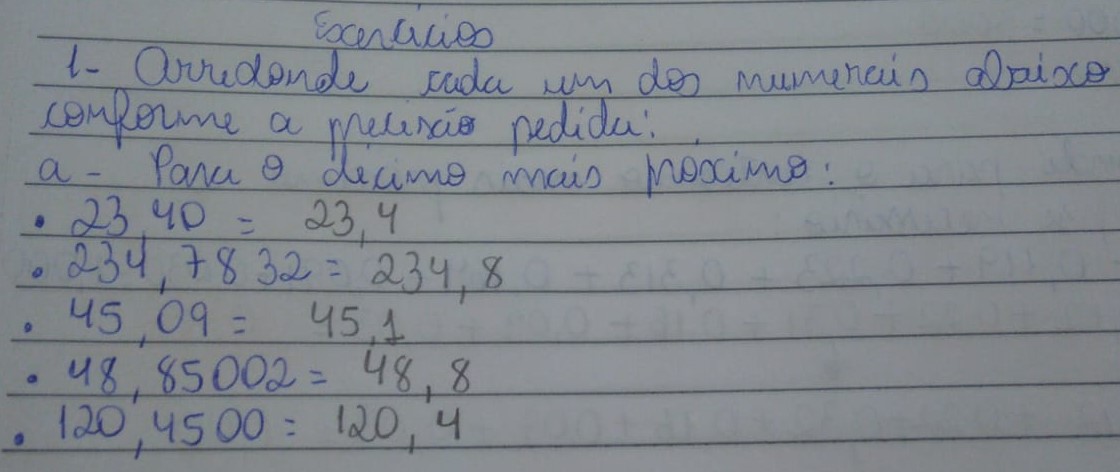 Exercícios
1- Arredonde cada um dos numerais abaixo
conforme a precisão pedida:
a - Para o décimo mais próximo:
. 23,40 = 23,4
. 234,7832 = 234,8
. 45,09 = 45,1
. 48,85002 = 48,8
. 120,4500 = 120,4